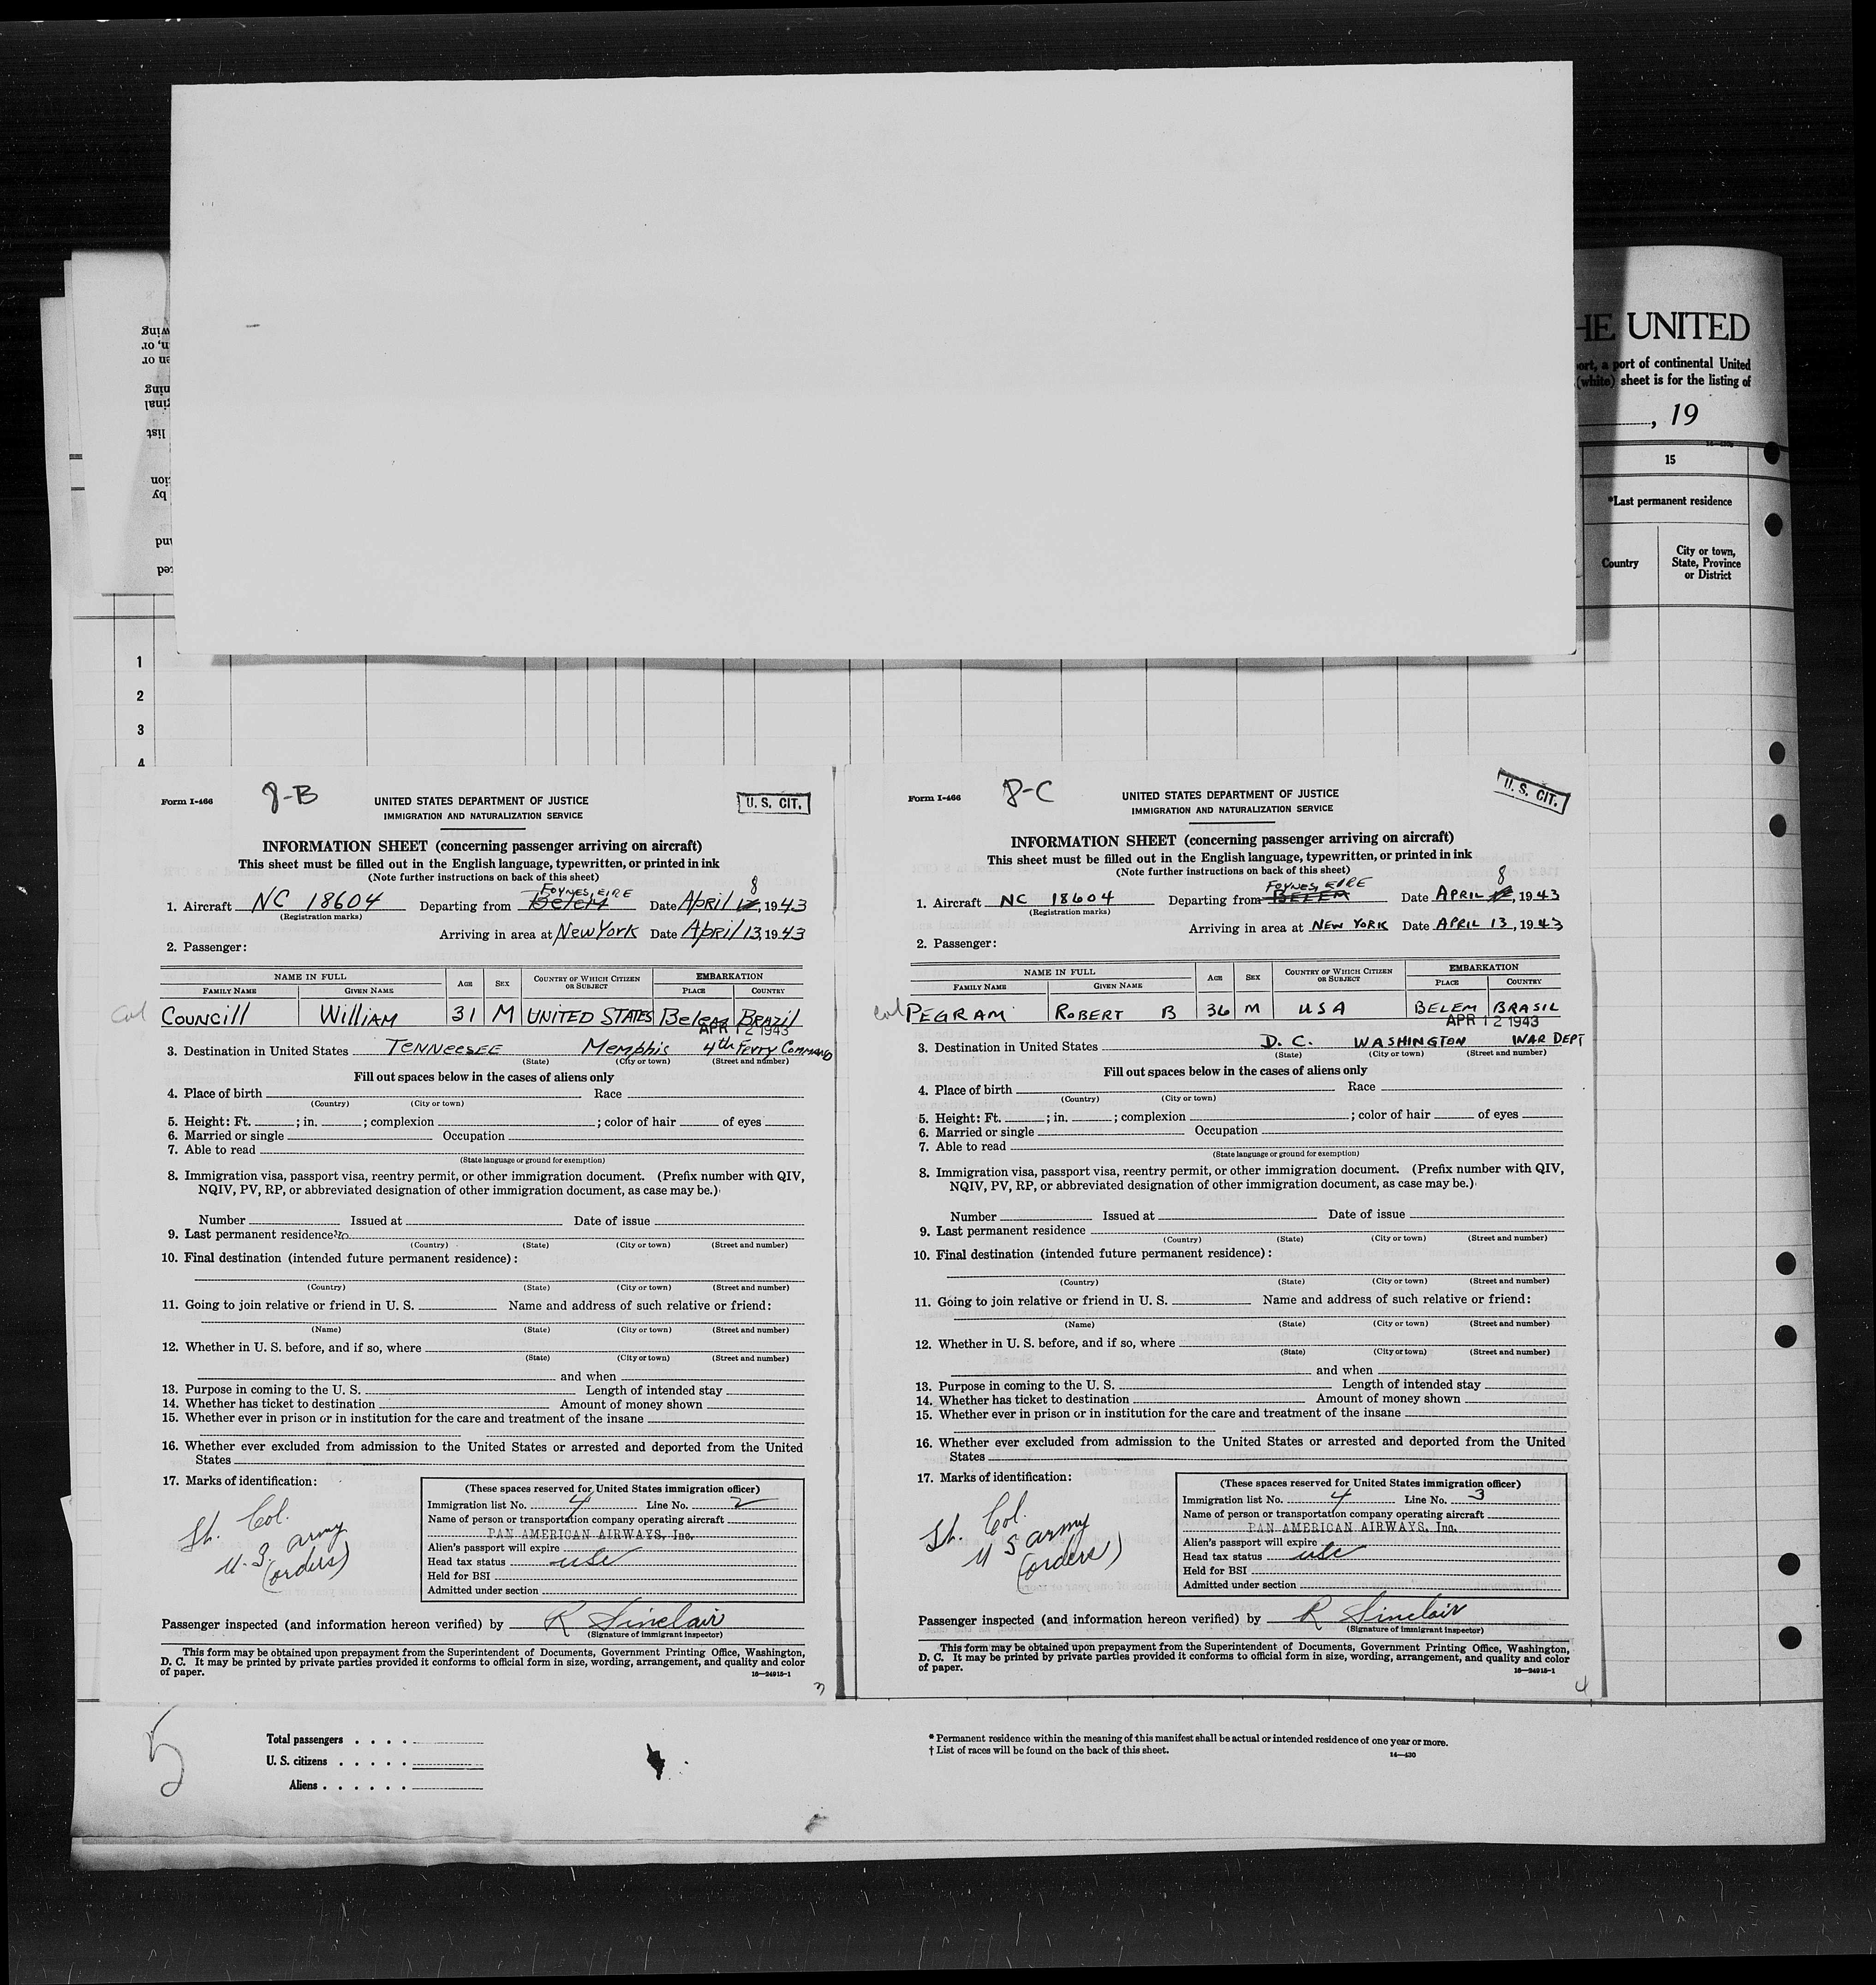 HE UNITED
ort, a port of continental United
(white) sheet is for the listing of
, 19
15
*Last permanent residence
Country
City or town, State, Province or District
1
2
3
4
Form I-466
8-B
UNITED STATES DEPARTMENT OF JUSTICE
IMMIGRATION AND NATURALIZATION SERVICE
U. S. CIT.
INFORMATION SHEET (concerning passenger arriving on aircraft)
This sheet must be filled out in the English language, typewritten, or printed in ink
(Note further instructions on back of this sheet)
FOYNES, EIRE 8
1. Aircraft NC 18604 Departing from Belem Date April 12, 1943
(Registration marks)
Arriving in area at New York Date April 13, 1943
2. Passenger:
NAME IN FULL AGE SEX COUNTRY OF WHICH CITIZEN OR SUBJECT EMBARKATION
FAMILY NAME GIVEN NAME PLACE COUNTRY
Col Councill William 31 M UNITED STATES Belem Brazil
APR 12 1943
3. Destination in United States Tenneesee Memphis 4th Ferry Command
(State) (City or town) (Street and number)
Fill out spaces below in the cases of aliens only
4. Place of birth Race
(Country) (City or town)
5. Height: Ft. ; in. ; complexion ; color of hair of eyes
6. Married or single Occupation
7. Able to read
(State language or ground for exemption)
8. Immigration visa, passport visa, reentry permit, or other immigration document. (Prefix number with QIV,
NQIV, PV, RP, or abbreviated designation of other immigration document, as case may be.)
Number Issued at Date of issue
9. Last permanent residence
(Country) (State) (City or town) (Street and number)
10. Final destination (intended future permanent residence):
(Country) (State) (City or town) (Street and number)
11. Going to join relative or friend in U. S. Name and address of such relative or friend:
(Name) (State) (City or town) (Street and number)
12. Whether in U. S. before, and if so, where
(State) (City or town) (Street and number)
and when
13. Purpose in coming to the U. S. Length of intended stay
14. Whether has ticket to destination Amount of money shown
15. Whether ever in prison or in institution for the care and treatment of the insane
16. Whether ever excluded from admission to the United States or arrested and deported from the United
States
17. Marks of identification:
Lt. Col.
U. S. Army
(orders)
(These spaces reserved for United States immigration officer)
Immigration list No. 4 Line No. 2
Name of person or transportation company operating aircraft
PAN AMERICAN AIRWAYS, Inc.
Alien's passport will expire
Head tax status usc
Held for BSI
Admitted under section
Passenger inspected (and information hereon verified) by R Sinclair
(Signature of immigrant inspector)
This form may be obtained upon prepayment from the Superintendent of Documents, Government Printing Office, Washington,
D. C. It may be printed by private parties provided it conforms to official form in size, wording, arrangement, and quality and color
of paper.
16—24915-1
3
Form I-466
8-C
UNITED STATES DEPARTMENT OF JUSTICE
IMMIGRATION AND NATURALIZATION SERVICE
U. S. CIT.
INFORMATION SHEET (concerning passenger arriving on aircraft)
This sheet must be filled out in the English language, typewritten, or printed in ink
(Note further instructions on back of this sheet)
FOYNES, EIRE 8
1. Aircraft NC 18604 Departing from BELEM Date APRIL 12, 1943
(Registration marks)
Arriving in area at NEW YORK Date APRIL 13, 1943
2. Passenger:
NAME IN FULL AGE SEX COUNTRY OF WHICH CITIZEN OR SUBJECT EMBARKATION
FAMILY NAME GIVEN NAME PLACE COUNTRY
Col PEGRAM ROBERT B 36 M USA BELEM BRASIL
APR 12 1943
3. Destination in United States D. C. WASHINGTON WAR DEPT
(State) (City or town) (Street and number)
Fill out spaces below in the cases of aliens only
4. Place of birth Race
(Country) (City or town)
5. Height: Ft. ; in. ; complexion ; color of hair of eyes
6. Married or single Occupation
7. Able to read
(State language or ground for exemption)
8. Immigration visa, passport visa, reentry permit, or other immigration document. (Prefix number with QIV,
NQIV, PV, RP, or abbreviated designation of other immigration document, as case may be.)
Number Issued at Date of issue
9. Last permanent residence
(Country) (State) (City or town) (Street and number)
10. Final destination (intended future permanent residence):
(Country) (State) (City or town) (Street and number)
11. Going to join relative or friend in U. S. Name and address of such relative or friend:
(Name) (State) (City or town) (Street and number)
12. Whether in U. S. before, and if so, where
(State) (City or town) (Street and number)
and when
13. Purpose in coming to the U. S. Length of intended stay
14. Whether has ticket to destination Amount of money shown
15. Whether ever in prison or in institution for the care and treatment of the insane
16. Whether ever excluded from admission to the United States or arrested and deported from the United
States
17. Marks of identification:
Lt. Col.
U S Army
(orders)
(These spaces reserved for United States immigration officer)
Immigration list No. 4 Line No. 3
Name of person or transportation company operating aircraft
PAN AMERICAN AIRWAYS, Inc.
Alien's passport will expire
Head tax status usc
Held for BSI
Admitted under section
Passenger inspected (and information hereon verified) by R Sinclair
(Signature of immigrant inspector)
This form may be obtained upon prepayment from the Superintendent of Documents, Government Printing Office, Washington,
D. C. It may be printed by private parties provided it conforms to official form in size, wording, arrangement, and quality and color
of paper.
16—24915-1
4
5
Total passengers
U. S. citizens
Aliens
* Permanent residence within the meaning of this manifest shall be actual or intended residence of one year or more.
† List of races will be found on the back of this sheet.
14—430